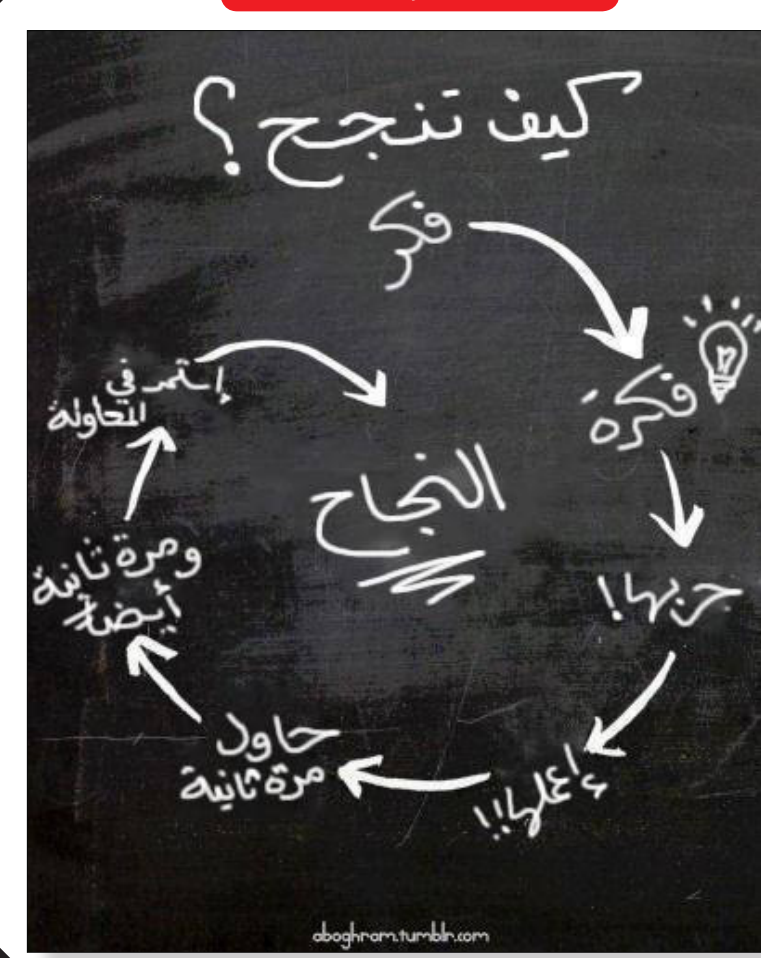 كيف تنجح؟
فكر
فكرة
جربها!
إعملها!!
حاول
مرة ثانية
ومرة ثانية
أيضا
إستمر في
المحاولة
النجاح
aboghram.tumblr.com